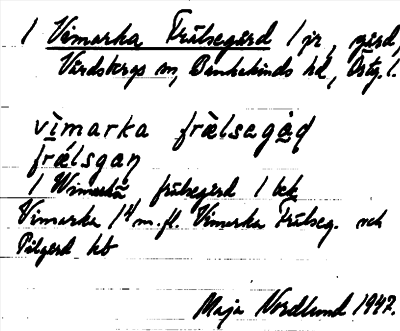 1 Vimarka Frälsegård 1 jr, gård,
Vårdsbergs sn, Bankekinds hd, Östg. l.
vìmarka frælsagåɖ
frǽlsgaɳ
1 Wimarka frälsegård 1 bek
Vimarka 1/4 m. fl. Vimarka Frälseg. och
Pilgård kb
Maja Nordlund 1947.